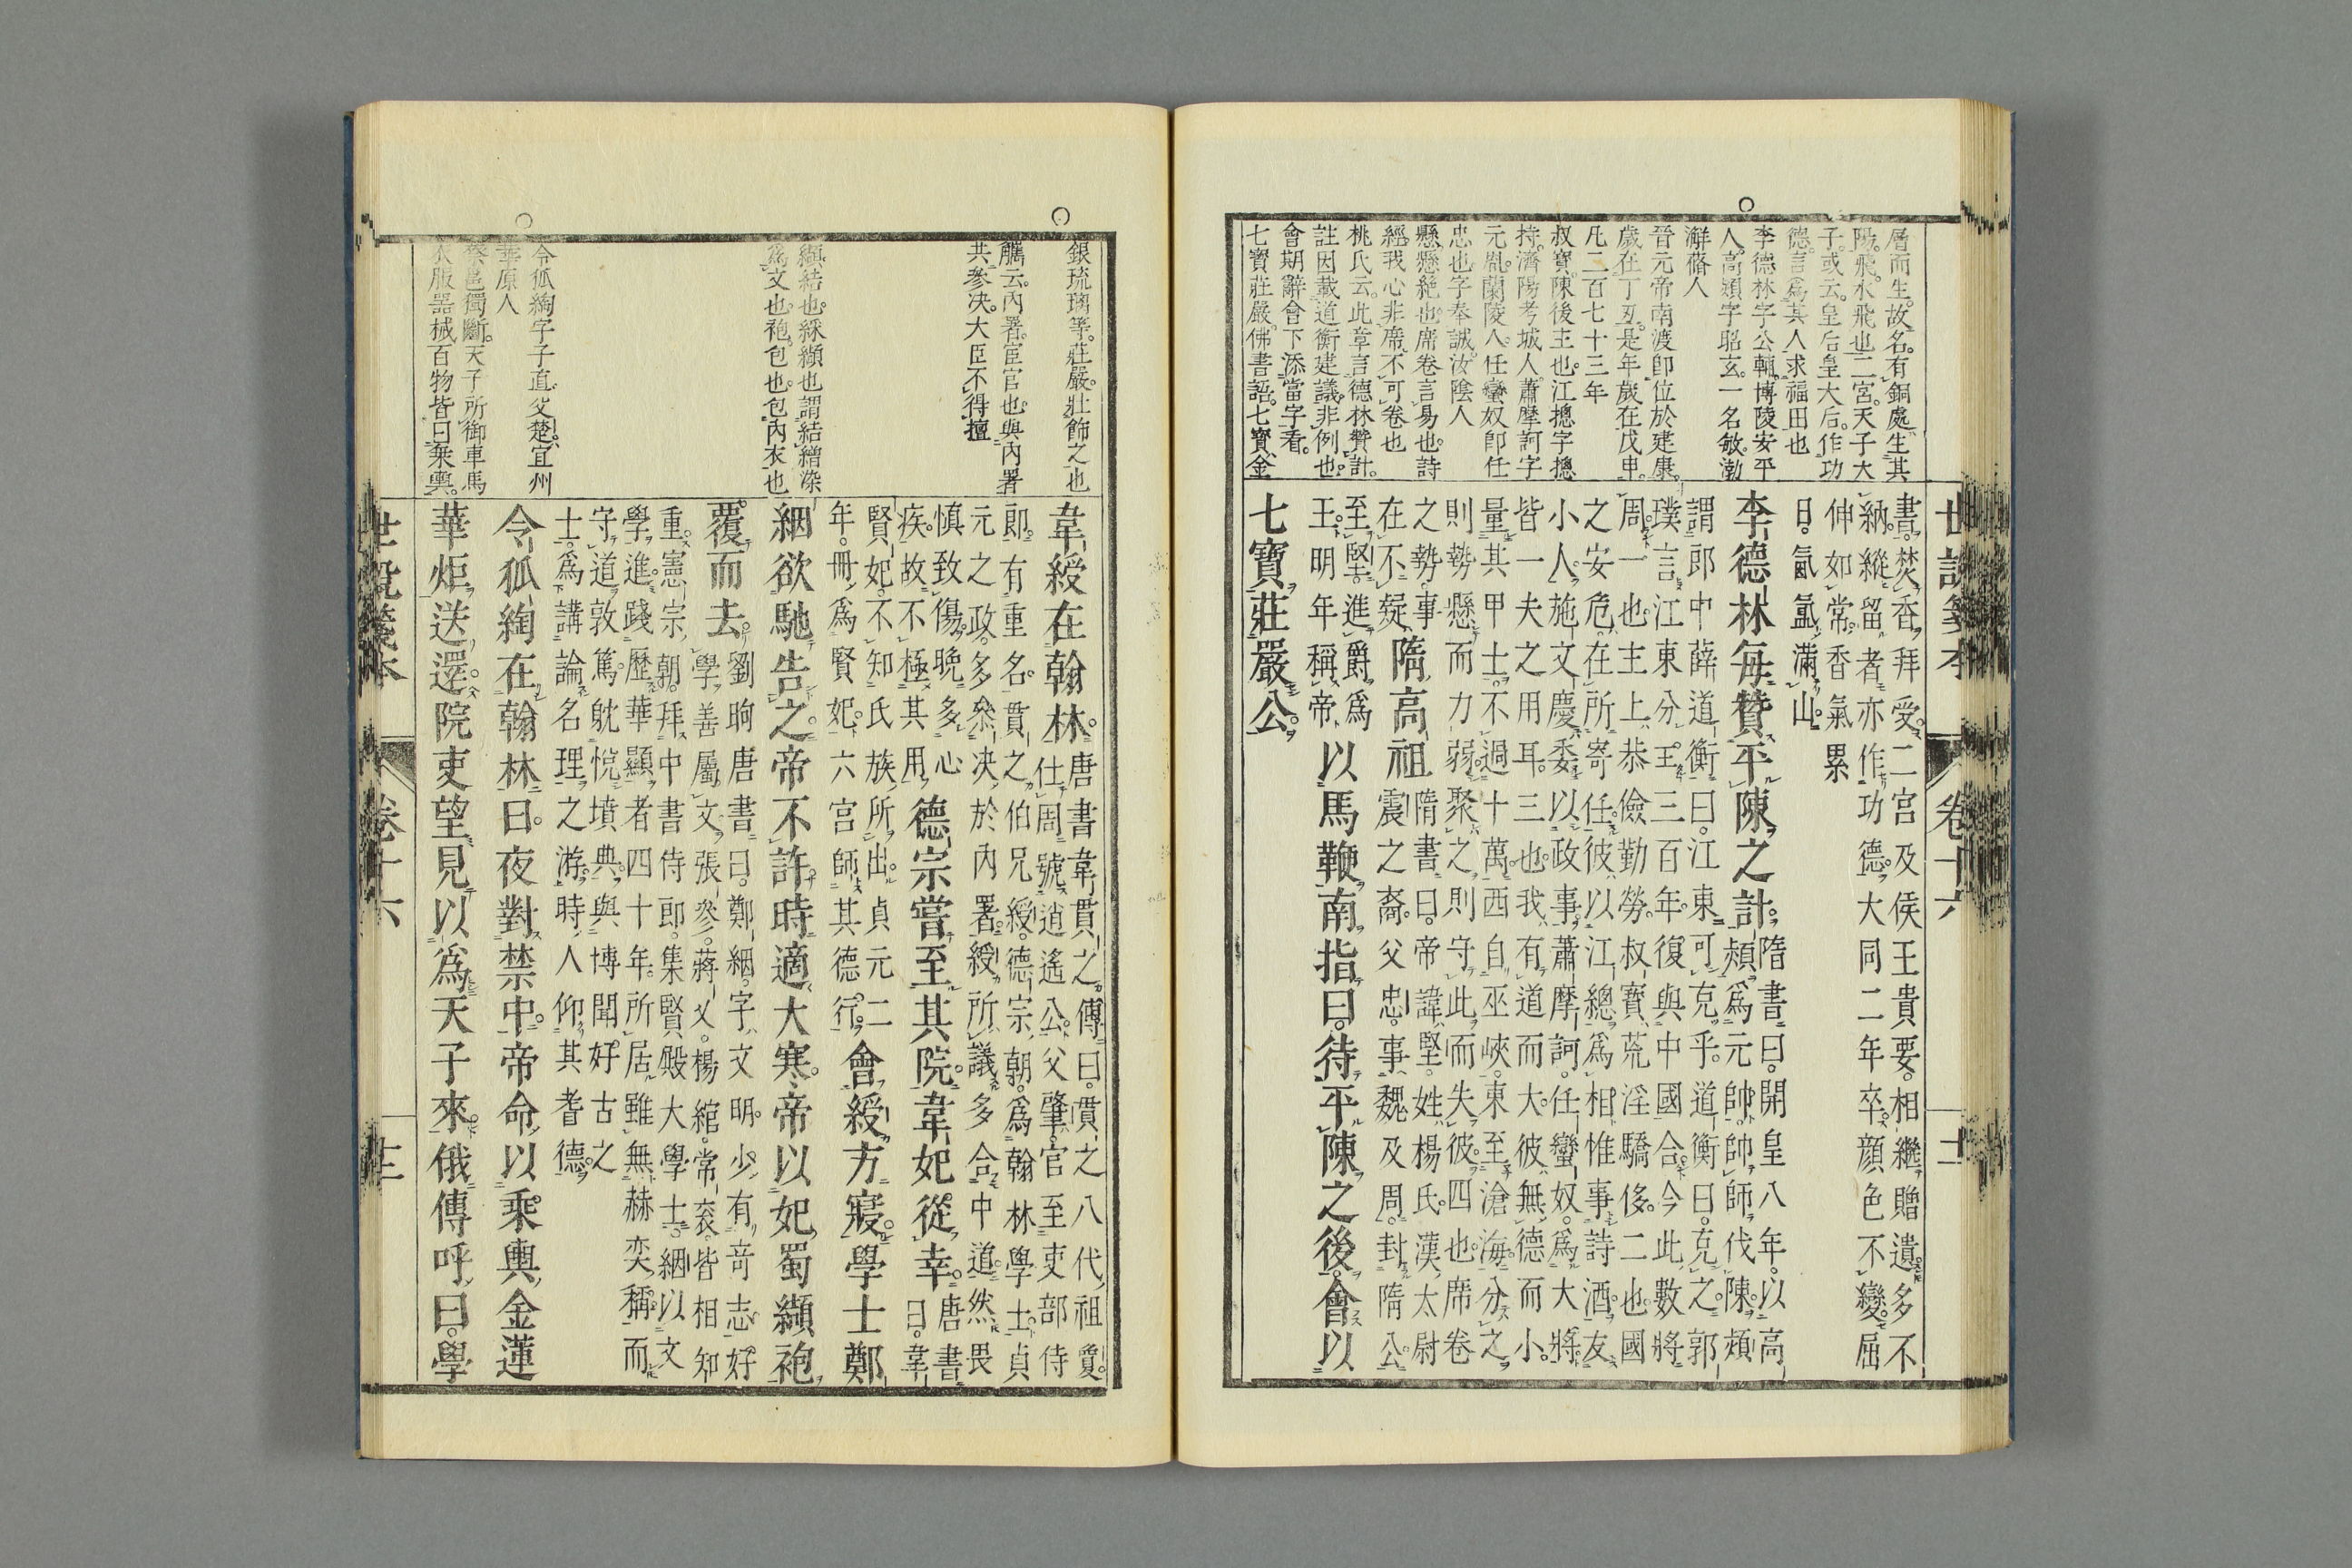 層而生。故名。有銅處生其
陽。飛。水飛也。二宮。天子大
子。或云。皇后皇大后。作功
德。言爲其人求福田也
李德林字公輔。博陵安平
人。高熲字昭玄。一名敏。渤
澥蓚人
晉元帝南渡卽位於建康。
歲在丁丑。是年歲在戊申。
凡二百七十三年
叔寶陳後主也。江摠字摠
持。濟陽考城人。蕭摩訶字
元胤。蘭陵人。任蠻奴卽任
忠也。字奉誠。汝陰人
懸。懸絶也。席卷言易也。詩
經我心非席不可卷也
桃氏云。此章言德林贊計。
註因載道衡建議。非例也。
會期辭會下添當字看。
七寶莊嚴。佛書語。七寶。金
世說箋本 卷十六
書。焚香拜受。二宮及侯王貴要。相繼贈遺。多不
納。縱留者亦作功德。大同二年卒。顏色不變。屈
伸如常。香氣累
日。氤氳滿山。
李德林每贊平陳之計。隋書曰。開皇八年。以高
熲爲元帥。帥師伐陳。熲
謂郎中薛道衡曰。江東可克乎。道衡曰。克之。郭
璞言。江東分王三百年。復與中國合。今此數將
周一也。主上恭儉勤勞。叔寶荒淫驕侈。二也。國
之安危。在所寄任。彼以江總爲相。惟事詩酒。友
小人。施文慶委以政事。蕭摩訶任蠻奴。爲大將。
皆一夫之用耳。三也。我有道而大。彼無德而小。
量其甲士。不過十萬。西自巫峽。東至滄海。分之
則勢懸而力弱。聚之則守此而失彼。四也。席卷
之勢。事
在不疑。隋高祖隋書曰。帝諱堅。姓楊氏。漢太尉
震之裔。父忠。事魏及周。封隋公。
至堅。進爵爲
王。明年稱帝。以馬鞭南指曰。待平陳之後。會以
七寶莊嚴公。
銀琉璃等。莊嚴。壯飾之也
鵬云。內署。宦官也。與內署
共參決。大臣不得擅
纈結也。綵纈也。謂結繒染
爲文也。袍。包也。包內衣也
令狐綯字子直。父楚。宜州
華原人
蔡邕獨斷。天子所御車馬
衣服器械百物皆曰乘輿。
韋綬在翰林。唐書韋貫之傳曰。貫之八代祖夐。
仕周。號逍遙公。父肇。官至吏部侍
郎。有重名。貫之伯兄綬。德宗朝。爲翰林學士。貞
元之政。多參決於內署。綬所議多合中道。然畏
愼致傷。晚多心
疾。故不極其用。德宗嘗至其院。韋妃從幸。唐書
曰。韋
賢妃。不知氏族所出。貞元二
年。冊爲賢妃。六宮師其德行。會綬方寢。學士鄭
絪欲馳告之。帝不許。時適大寒。帝以妃蜀纈袍
覆而去。劉昫唐書曰。鄭絪。字文明。少有奇志。好
學善屬文。張參。蔣乂。楊綰。常袞。皆相知
重。憲宗朝。拜中書侍郎。集賢殿大學士。絪以文
學進。踐歷華顯者四十年。所居雖無赫奕。稱而
守道敦篤。躭悅墳典。與博聞好古之
士。爲講論名理之游。時人仰其耆德。
令狐綯在翰林曰。夜對禁中。帝命以乘輿。金蓮
華炬送還。院吏望見以爲天子來。俄傳呼曰。學
世說箋本 卷十六